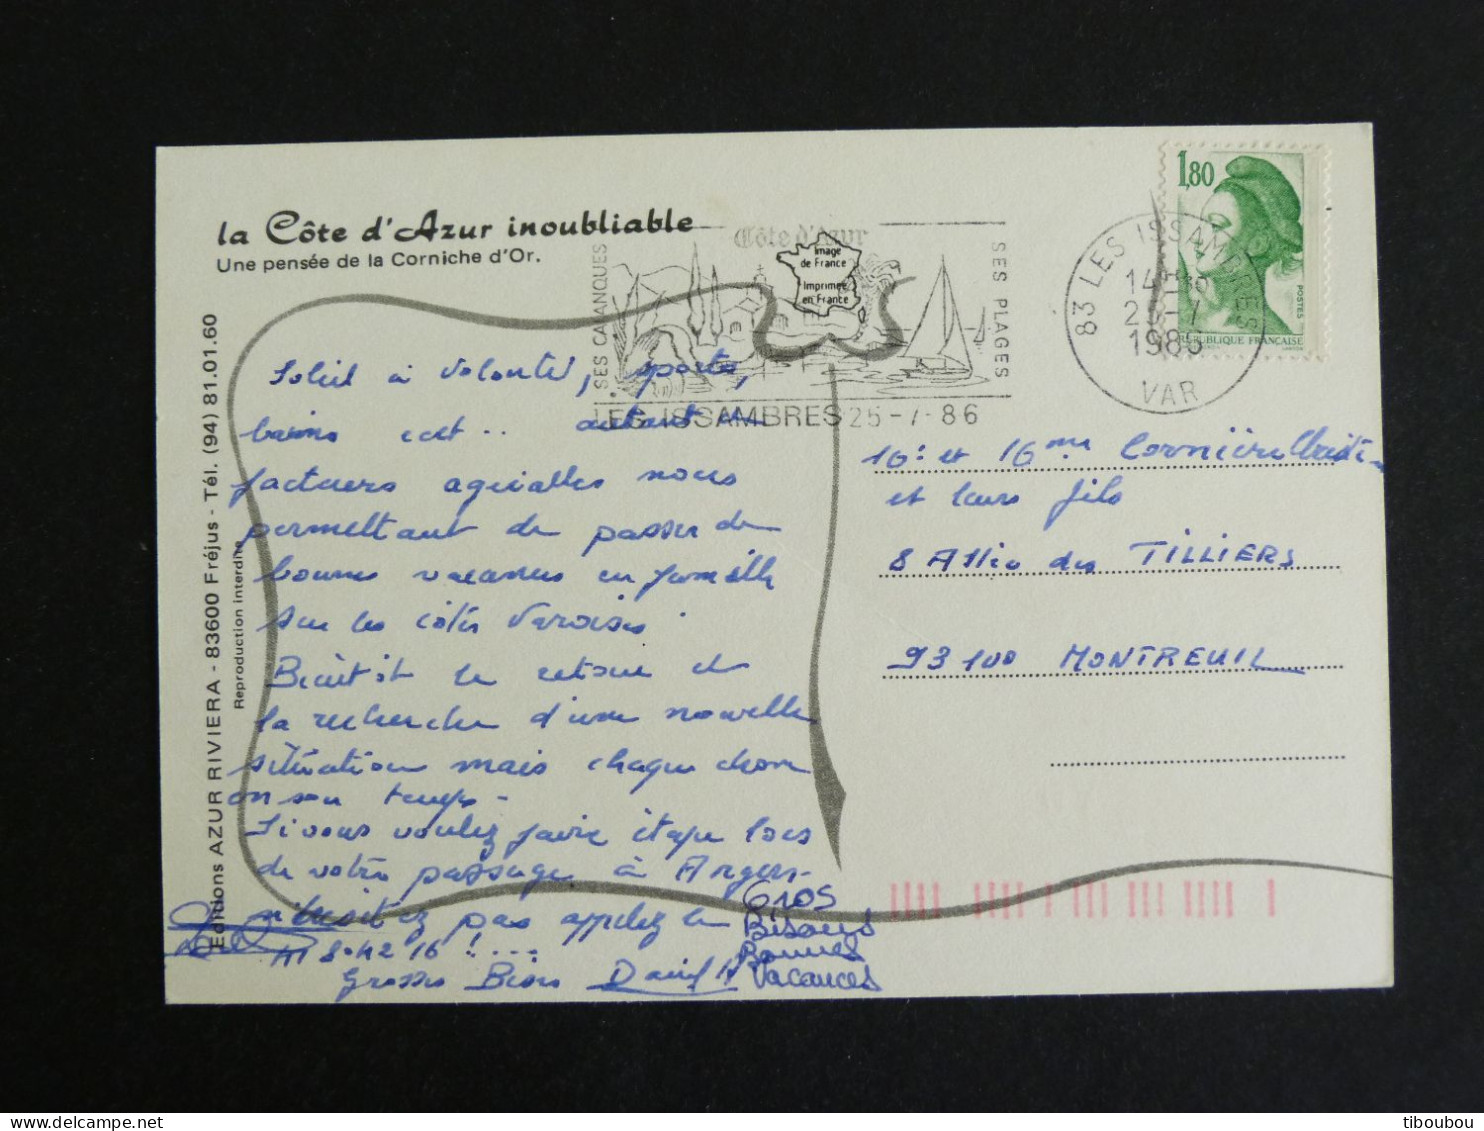 la Côte d'Azur inoubliable
Une pensée de la Corniche d'Or.
Côte d'Azur
Image
de France
Imprimée
en France
SES CALANQUES
SES PLAGES
LES ISSAMBRES 25-7-86
83 LES ISSAMBRES
25-7
1986
VAR
1,80
POSTES
REPUBLIQUE FRANÇAISE
Editions AZUR RIVIERA - 83600 Fréjus - Tél. (94) 81.01.60
Reproduction interdite
Soleil à volonté, sports,
bains ect.. autant de
facteurs agréables nous
permettant de passer de
bonnes vacances en famille
sur les côtes Varoises.
Bientôt le retour et
la recherche d'une nouvelle
situation mais chaque chose
en son temps -
Si vous voulez faire étape lors
de votre passage à Angers
n'hésitez pas appelez le
8.42 16 !...
Grosses Bises David
Gros
Bisous
Bonnes
Vacances
et leurs fils
8 Allée des TILLIERS
93100 MONTREUIL
tiboubou